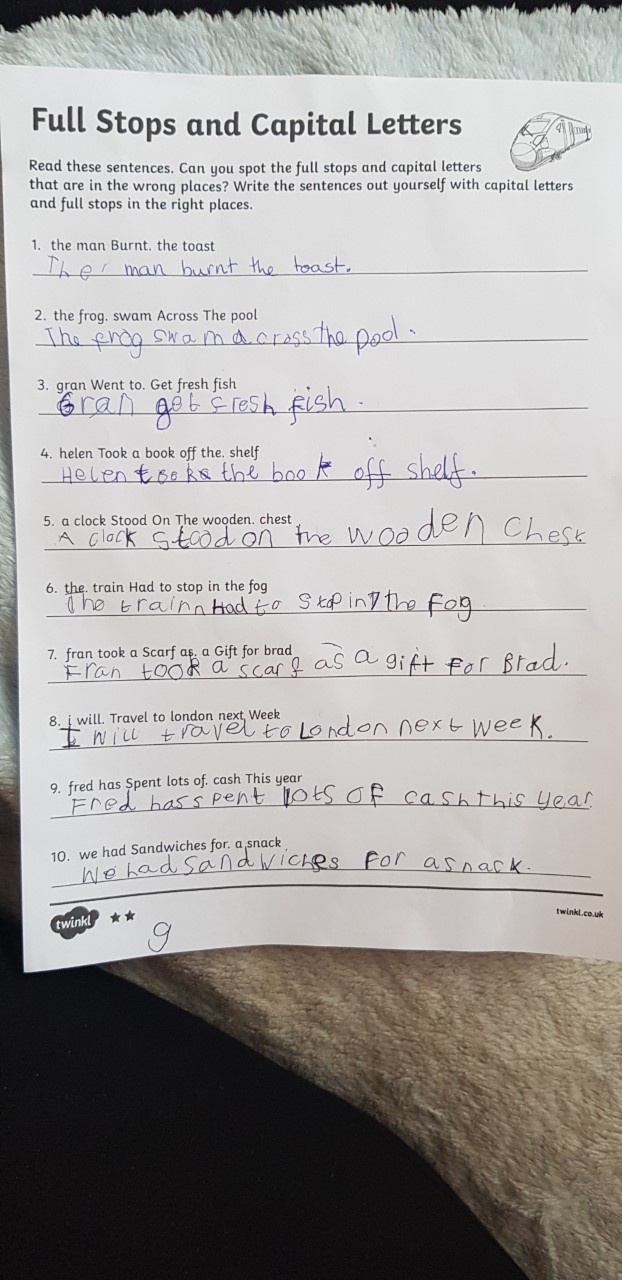 Full Stops and Capital Letters
Read these sentences. Can you spot the full stops and capital letters
that are in the wrong places? Write the sentences out yourself with capital letters
and full stops in the right places.
1. the man Burnt. the toast
The man burnt the toast.
2. the frog. swam Across The pool
The frog swam across the pool.
3. gran Went to. Get fresh fish
Gran get fresh fish.
4. helen Took a book off the. shelf
Helen the book off shelf.
5. a clock Stood On The wooden. chest
A clock stood on the wooden Chest
6. the. train Had to stop in the fog
The train Had to stop in the Fog
7. fran took a Scarf as. a Gift for brad
Fran took a scarf as a gift For Brad.
8. i will. Travel to london next Week
I will travel to London next week.
9. fred has Spent lots of. cash This year
Fred has spent lots OF cash this year.
10. we had Sandwiches for. a snack
We had sandwiches For a snack.
twinkl
twinkl.co.uk
9